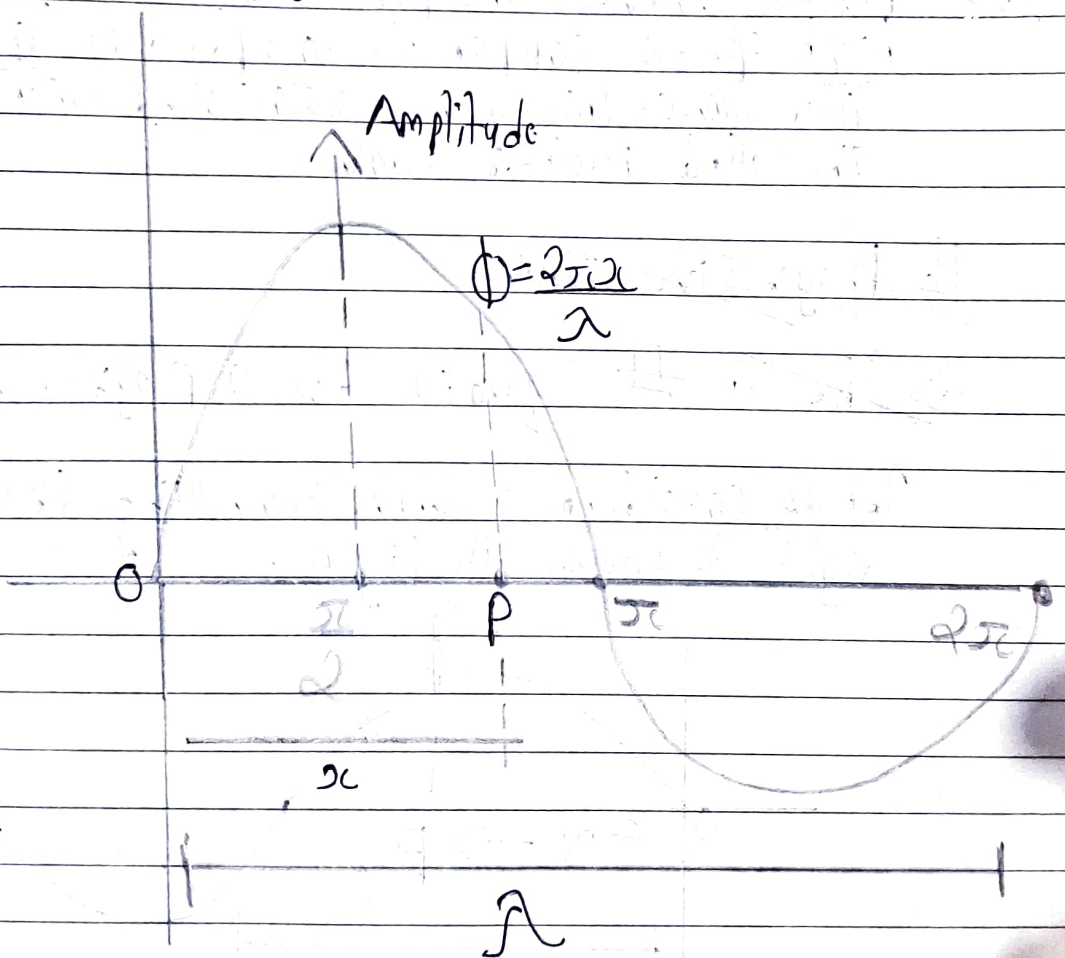 Amplitude
ϕ=2πx
λ
O
P
π
2π
π
2
x
λ